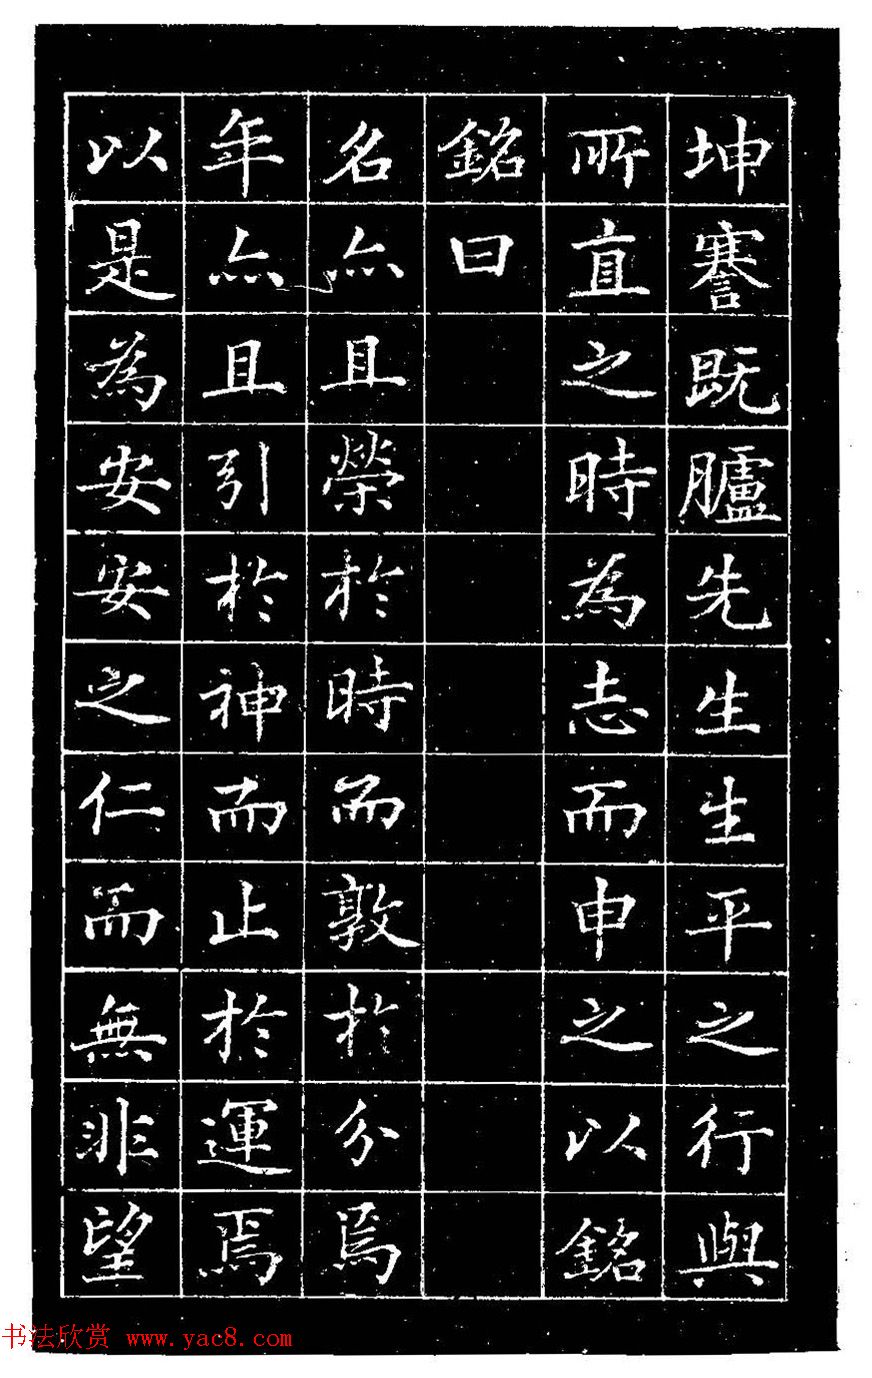 坤謇既臚先生生平之行與
所直之時為志而申之以銘
銘曰
名亦且榮於時而敦於分焉
年亦且引於神而止於運焉
以是為安安之仁而無非望
书法欣赏 www.yac8.com